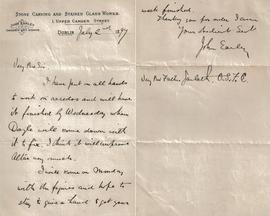 STONE CARVING AND STAINED GLASS WORKS.
1 UPPER CAMDEN STREET
JOHN EARLEY
DUBLIN July 2nd 1897
Very Rev Sir,
I have put in all hands
to work on reredos and will have
it finished by Wednesday when
Doyle will come down with
it to fix. I think it will improve
Altar very much.
I will come on Monday
with the figures and hope to
stay to give a hand & get your
work finished.
Thanking you for order I am
Your obedient Sert
John Earley
Very Rev Father O.S.F.C.